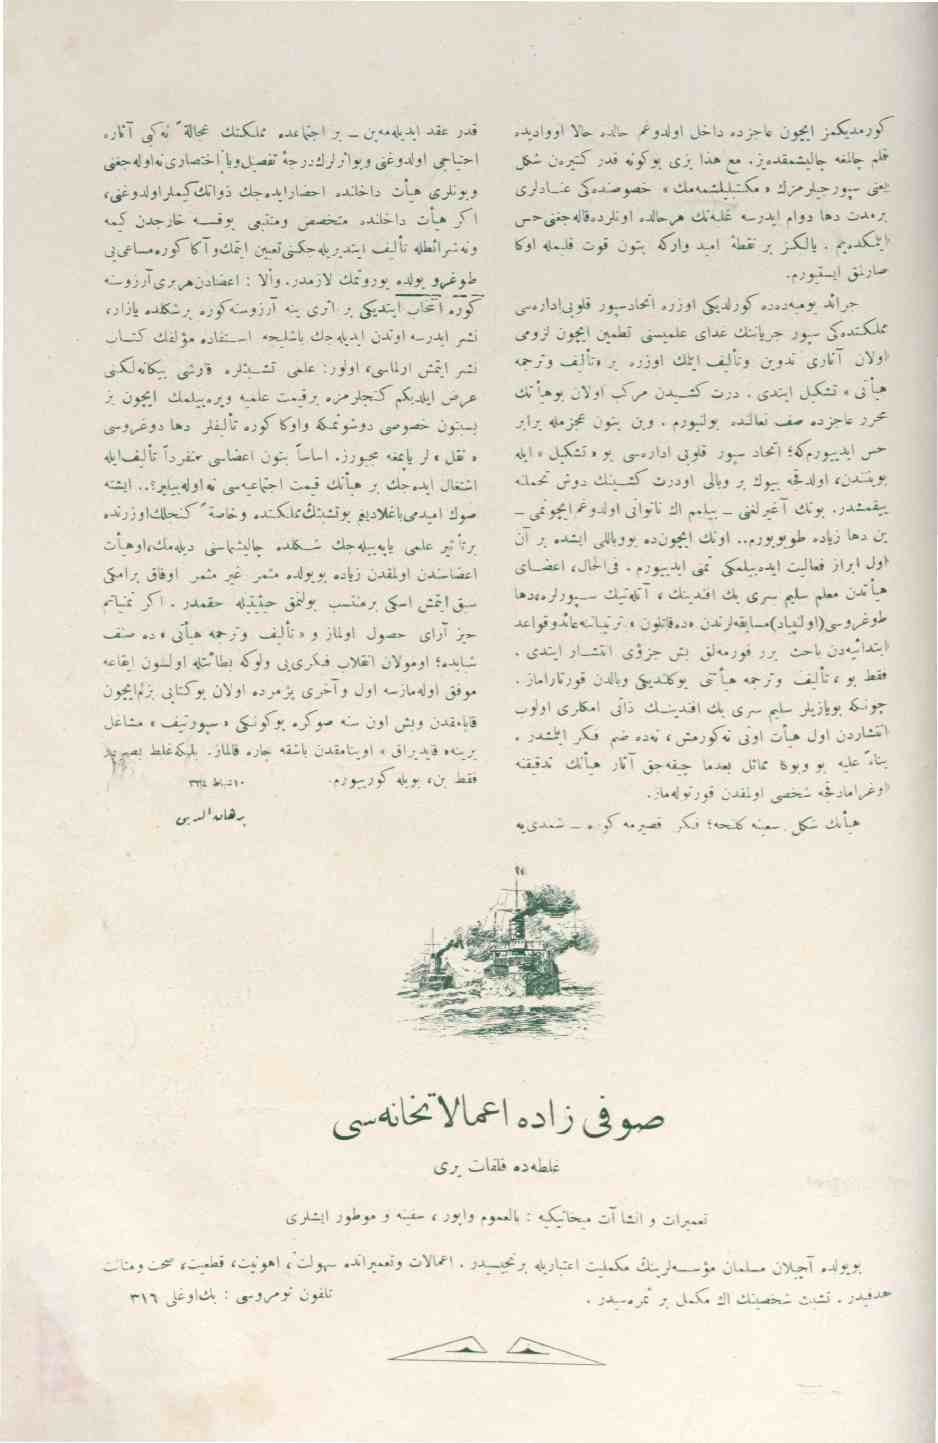 كورمديكمز ايچون عاجزده داخل اولدوغم حالده حالا اوواديده
قلم چالغه چاليشمقده‌يز. مع هذا بزى بوكونه قدر كتيره‌ن شكل
يعنى سپورجيلرمزك «مكتبليلشمه‌مك» خصوصنده‌كى عنادلرى
برمدت دها دوام ايدرسه غلبه‌نك هرحالده اونلرده‌قاله‌جغنى حس
ايتمكده‌يم. يالكز بر نقطهٔ اميد واركه بتون قوت قلبمله اوكا
صارلمق ايستيورم.
جرائد يوميه‌ده‌ده كورلديكى اوزره اتحادسپور قلوبى‌اداره‌سى
مملكتنده‌كى سپور جرياننك غداى علميسنى تطمين ايچون لزومى
اولان آثارى تدوين وتأليف ايتمك اوزره بر «تأليف وترجمه
هيأتى» تشكيل ايتدى. درت كشيدن مركب اولان بوهيأتك
محرر عاجزده صف نعالنده بولنيورم. وبن بتون عجزمله برابر
حس ايدييورم‌كه؛ اتحاد سپور قلوبى اداره‌سى بو «تشكيل» ايله
بويندن، اولدقجه بيوك بر وبالى اودرت كشينك دوش تحملنه
ييقمشدر. بونك آغيرلغنى ــ بيلمم اك ناتوانى اولدوغم‌ايچونمى ــ
بن دها زياده طويويورم.. اونك ايچون‌ده بووباللى ايشده بر آن
اول ابراز فعاليت ايده‌بيلمكى تمنى ايدييورم. فى‌الحال، اعضاى
هيأتدن معلم سليم سرى بك افندينك، آتله‌تيك سپورلره،دها
طوغروسى(اولمپياد)مسابقه‌لرندن «ده‌قاتلون» ترتيباتنه‌عائدوقواعد
ابتدائيه‌دن باحث برر فورمه‌لق بش جزؤى انتشار ايتدى.
فقط بو، تأليف وترجمه هيأتنى يوكلنديكى وبالدن قورتاراماز.
چونكه بويازيلر سليم سرى بك افندينك ذاتى امكلرى اولوب
انتشاردن اول هيأت اونى نه‌كورمش، نه‌ده ضم فكر ايتمشدر.
بناءً عليه بو وبوكا مماثل بعدما چيقه‌جق آثار هيأتك تدقيقنه
اوغرامادقجه شخصى اولمقدن قورتوله‌ماز.
هيأتك شكل سعينه كلنجه؛ فكر قصيرمه كوره ــ شمدى‌يه
قدر عقد ايديله‌مه‌ين ــ بر اجتماعده مملكتك عجالةً نه‌كبى آثاره
احتياجى اولدوغى وبواثرلرك‌درجهٔ تفصيل‌ويا اختصارى‌نه‌اوله‌جغنى
وبونلرى هيأت داخلنده احضارايده‌جك ذواتك‌كيملراولدوغنى،
اكر هيأت داخلنده متخصص ومتتبعى يوقسه خارجدن كيمه
ونه‌شرائطله تأليف ايتديريله‌جكنى‌تعيين ايتمك‌وآكا كوره‌مساعى‌يى
طوغرو يولده يوروتمك لازمدر. والا: اعضادن‌هربرى‌آرزوسنه
كوره انتخاب ايتديكى بر اثرى ينه آرزوسنه‌كوره برشكلده يازار،
نشر ايدرسه اوندن ايديله‌جك باشليجه استفاده مؤلفك كتاب
نشر ايتمش اولماسى، اولور: علمى تشبثلره قارشى بيكانه‌لكنى
عرض ايلديكم كنجلرمزه برقيمت علميه ويره‌بيلمك ايچون بز
بسبتون خصوصى دوشونمكه واوكا كوره تأليفلر دها دوغروسى
«نقل» لر ياپمغه مجبورز. اساساً بتون اعضاسى منفرداً تأليف‌ايله
اشتغال ايده‌جك بر هيأتك قيمت اجتماعيه‌سى نه‌اوله‌بيلير؟.. ايشته
صوك اميدمى‌باغلاديغم بوتشبثك‌مملكتده وخاصةً كنجلك‌اوزرنده
برتأثير علمى ياپه‌بيله‌جك شكلده چاليشماسنى ديله‌مك،اوهيأت
اعضاسندن اولمقدن زياده بويولده مثمر غير مثمر اوفاق برامكى
سبق ايتمش اسكى برمنتسب بولنمق حيثيتيله حقمدر. اكر تمنياتم
حيز آراى حصول اولماز و «تأليف وترجمه هيأتى» ده صنف
شبابده؛ اومولان انقلاب فكرى‌يى ولوكه بطائتله اولسون ايقاعه
موفق اوله‌مازسه اول وآخرى پژمرده اولان بوكتابى بزم‌ايچون
قاپامقدن وبش اون سنه صوكره بوكونكى «سپورتيف» مشاغل
يرينه «قايديراق» اوينامقدن باشقه چاره قالماز. بلكه‌غلط
فقط بن، بويله كورييورم.
١٠ شباط ٣٣٤
برهان‌الدين
صوفى زاده اعمالاتخانه‌سى
غلطه‌ده قلفات يرى
تعميرات و انشاآت ميخانيكيه : بالعموم واپور، سفينه و موطور ايشلرى
بويولده آچيلان مسلمان مؤسسه‌لرينك مكمليت اعتباريله برنجيسيدر. اعمالات وتعميراتده سهولت، اهونيت، قطعيت، صحت ومتانت
هدفيدر. تشبث شخصينك اك مكمل بر ثمره‌سيدر.
تلفون نومروسى : بك‌اوغلى ٣١٦